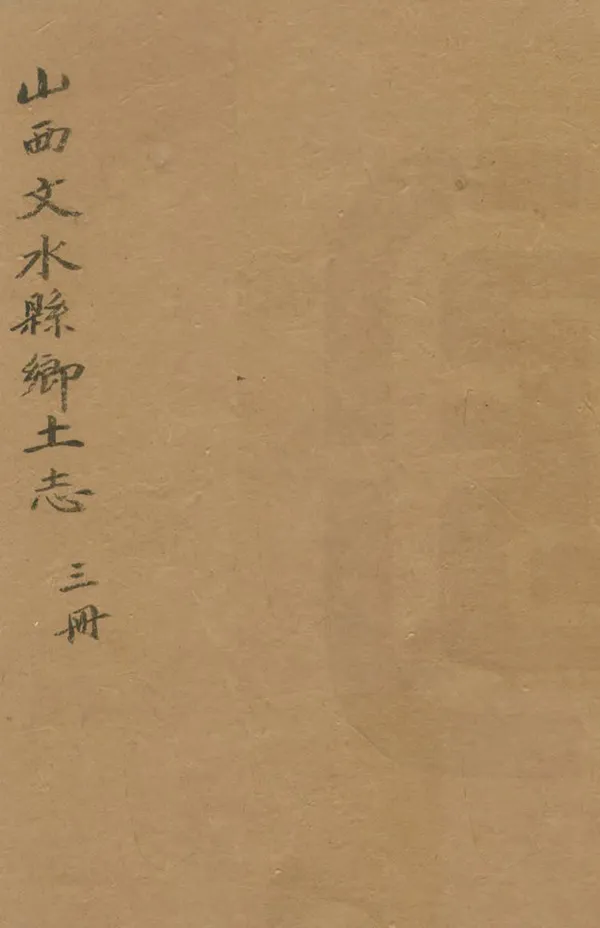 山西文水縣鄉土志
三冊